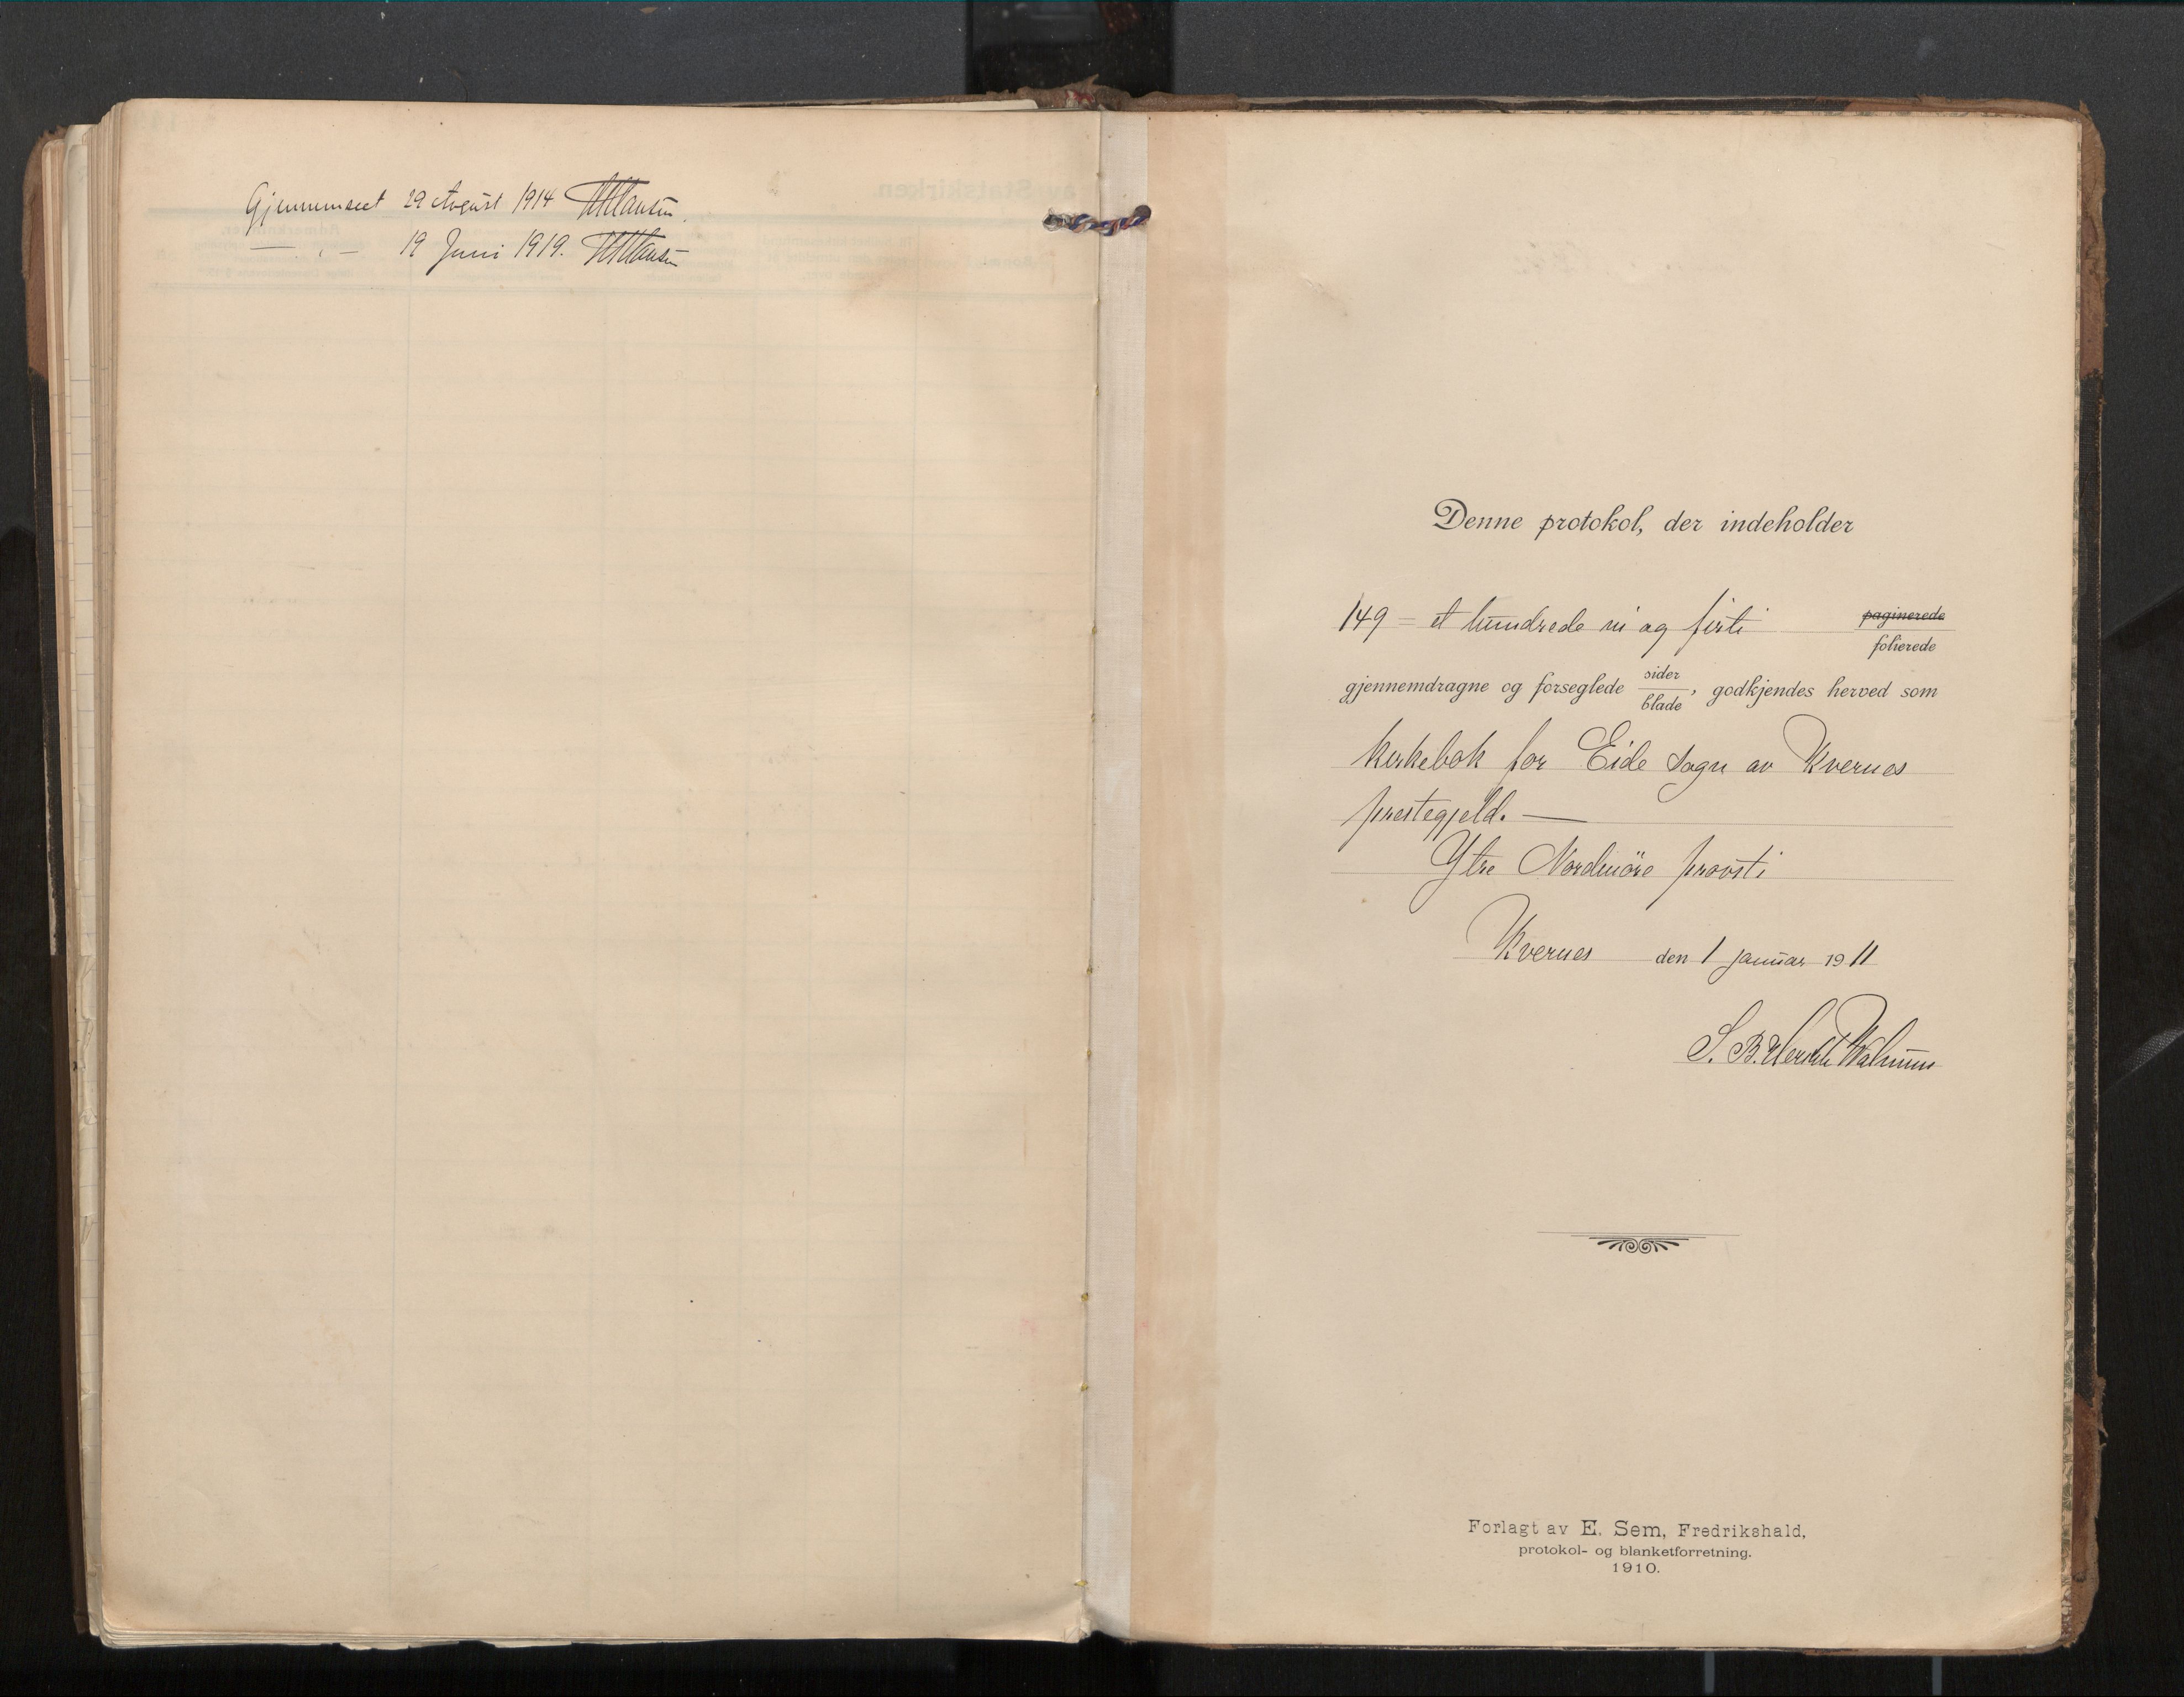 Gjennemseet 29 August 1914 HHansen.
— „ — 19 Juni 1919. HHansen
Denne protokol, der indeholder
149 = et hundrede ni og firti paginerede
folierede
gjennemdragne og forseglede sider
blade, godkjendes herved som
kirkebok for Eide sogn av Kvernes
prestegjeld. —
Ytre Nordmöre provsti
Kvernes den 1 januar 1911
S. B.
Forlagt av E. Sem, Fredrikshald,
protokol- og blanketforretning.
1910.